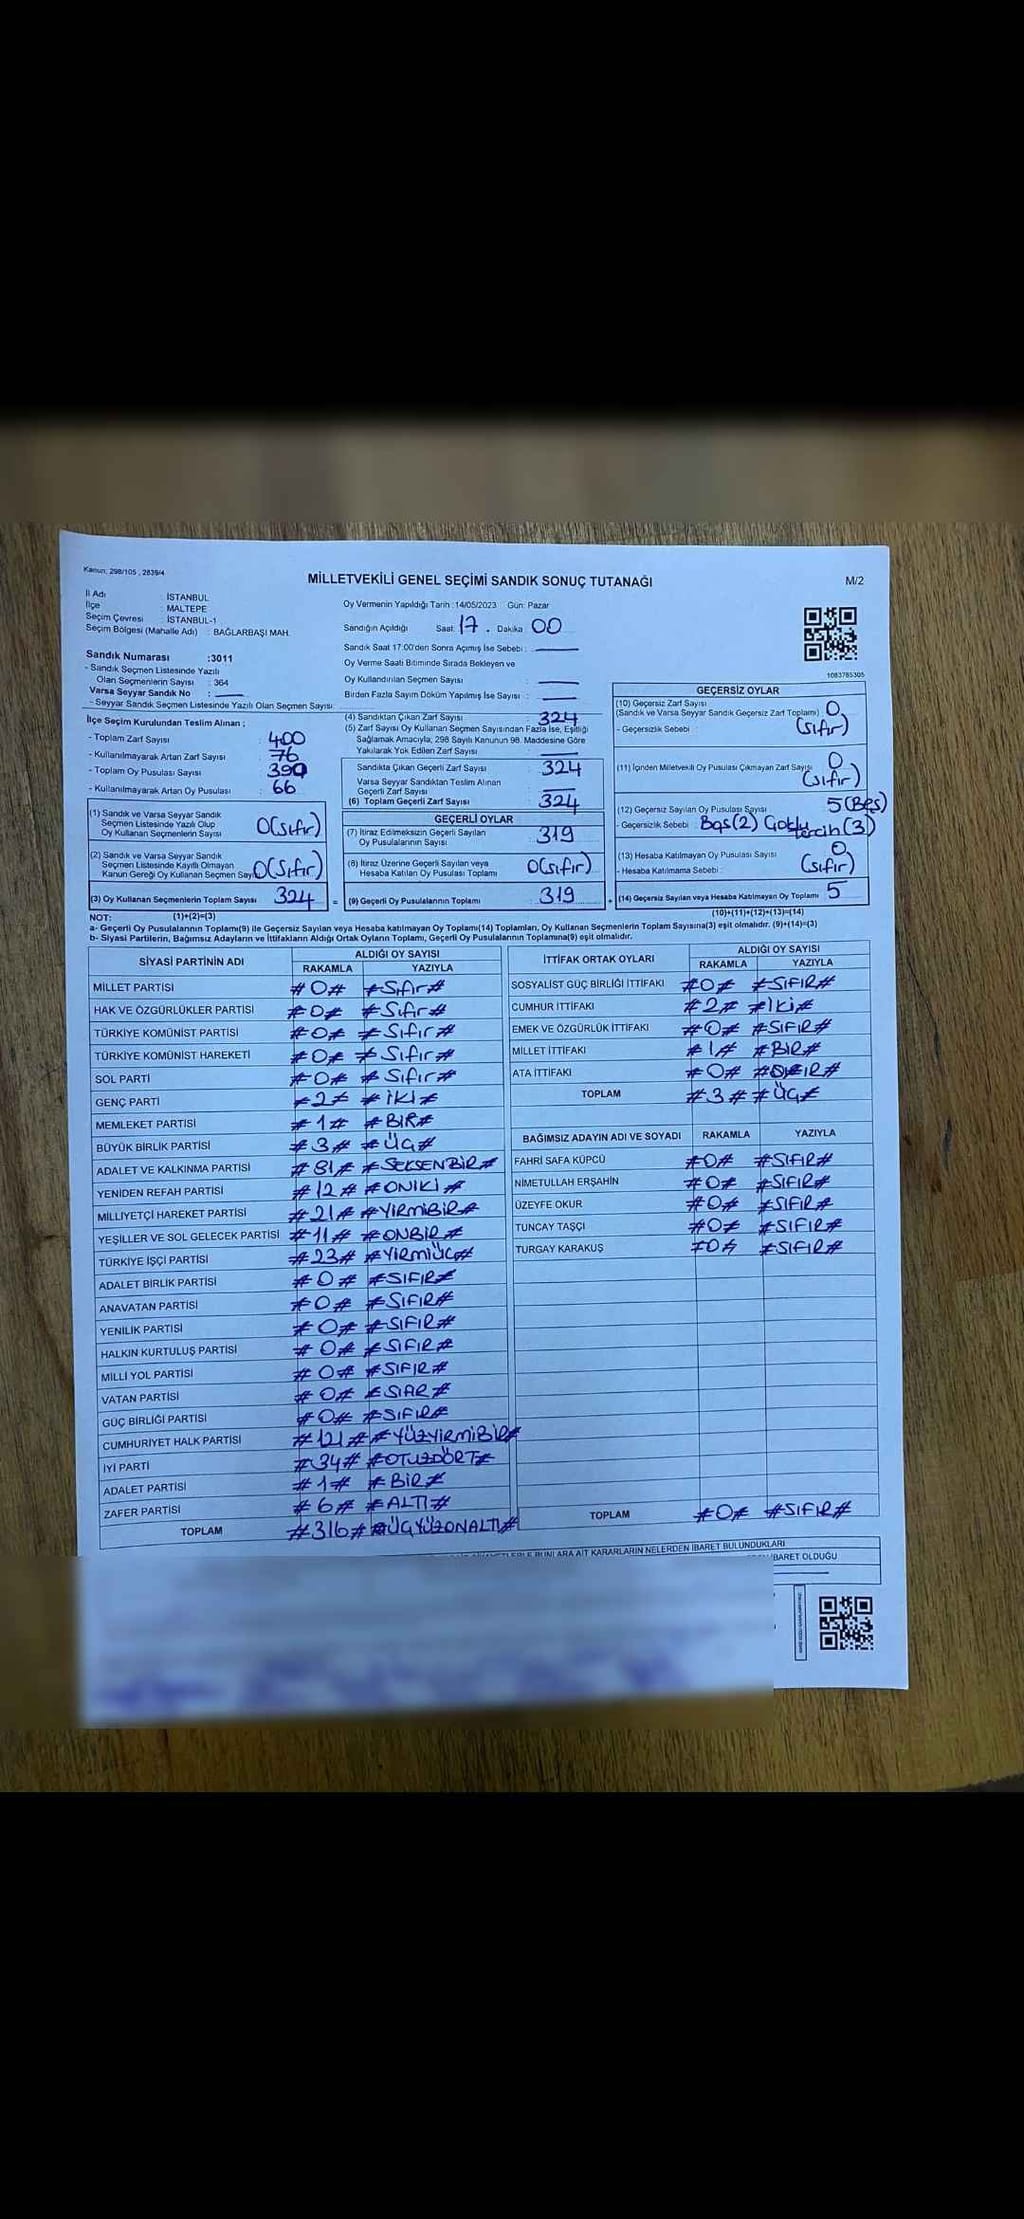 Kanun: 298/105 , 2839/4
MİLLETVEKİLİ GENEL SEÇİMİ SANDIK SONUÇ TUTANAĞI
M/2
İl Adı : İSTANBUL
İlçe : MALTEPE
Seçim Çevresi : İSTANBUL-1
Seçim Bölgesi (Mahalle Adı) : BAĞLARBAŞI MAH.
Oy Vermenin Yapıldığı Tarih :14/05/2023 Gün: Pazar
Sandığın Açıldığı Saat: 17 . Dakika 00
Sandık Saat 17:00'den Sonra Açımış İse Sebebi :
Oy Verme Saati Bitiminde Sırada Bekleyen ve
Oy Kullandırılan Seçmen Sayısı :
Birden Fazla Sayım Döküm Yapılmış İse Sayısı :
1083785305
Sandık Numarası :3011
- Sandık Seçmen Listesinde Yazılı
Olan Seçmenlerin Sayısı : 364
Varsa Seyyar Sandık No :
- Seyyar Sandık Seçmen Listesinde Yazılı Olan Seçmen Sayısı:
İlçe Seçim Kurulundan Teslim Alınan ;
- Toplam Zarf Sayısı : 400
- Kullanılmayarak Artan Zarf Sayısı : 76
- Toplam Oy Pusulası Sayısı : 390
- Kullanılmayarak Artan Oy Pusulası : 66
(1) Sandık ve Varsa Seyyar Sandık
Seçmen Listesinde Yazılı Olup
Oy Kullanan Seçmenlerin Sayısı : 0(Sıfır)
(2) Sandık ve Varsa Seyyar Sandık
Seçmen Listesinde Kayıtlı Olmayan
Kanun Gereği Oy Kullanan Seçmen Sayı 0(Sıfır)
(3) Oy Kullanan Seçmenlerin Toplam Sayısı 324 =
(4) Sandıktan Çıkan Zarf Sayısı : 324
(5) Zarf Sayısı Oy Kullanan Seçmen Sayısından Fazla İse, Eşitliği
Sağlamak Amacıyla; 298 Sayılı Kanunun 98. Maddesine Göre
Yakılarak Yok Edilen Zarf Sayısı :
Sandıkta Çıkan Geçerli Zarf Sayısı : 324
Varsa Seyyar Sandıktan Teslim Alınan
Geçerli Zarf Sayısı :
(6) Toplam Geçerli Zarf Sayısı : 324
GEÇERLİ OYLAR
(7) İtiraz Edilmeksizin Geçerli Sayılan
Oy Pusulalarının Sayısı : 319
(8) İtiraz Üzerine Geçerli Sayılan veya
Hesaba Katılan Oy Pusulası Toplamı : 0(Sıfır)
(9) Geçerli Oy Pusulalarının Toplamı : 319 +
GEÇERSİZ OYLAR
(10) Geçersiz Zarf Sayısı
(Sandık ve Varsa Seyyar Sandık Geçersiz Zarf Toplamı) : 0
- Geçersizlik Sebebi : (Sıfır)
(11) İçinden Milletvekili Oy Pusulası Çıkmayan Zarf Sayısı 0
(Sıfır)
(12) Geçersiz Sayılan Oy Pusulası Sayısı 5 (Beş)
- Geçersizlik Sebebi : Boş(2) Çoklu
tercih(3)
(13) Hesaba Katılmayan Oy Pusulası Sayısı : 0
- Hesaba Katılmama Sebebi : (Sıfır)
(14) Geçersiz Sayılan veya Hesaba Katılmayan Oy Toplamı 5
NOT: (1)+(2)=(3)
(10)+(11)+(12)+(13)=(14)
a- Geçerli Oy Pusulalarının Toplamı(9) ile Geçersiz Sayılan veya Hesaba katılmayan Oy Toplamı(14) Toplamları, Oy Kullanan Seçmenlerin Toplam Sayısına(3) eşit olmalıdır. (9)+(14)=(3)
b- Siyasi Partilerin, Bağımsız Adayların ve İttifakların Aldığı Ortak Oyların Toplamı, Geçerli Oy Pusulalarının Toplamına(9) eşit olmalıdır.
SİYASİ PARTİNİN ADI
ALDIĞI OY SAYISI
RAKAMLA YAZIYLA
MİLLET PARTİSİ #0# #Sıfır#
HAK VE ÖZGÜRLÜKLER PARTİSİ #0# #Sıfır#
TÜRKİYE KOMÜNİST PARTİSİ #0# #Sıfır#
TÜRKİYE KOMÜNİST HAREKETİ #0# #Sıfır#
SOL PARTİ #0# #Sıfır#
GENÇ PARTİ #2# #İKİ#
MEMLEKET PARTİSİ #1# #BİR#
BÜYÜK BİRLİK PARTİSİ #3# #ÜÇ#
ADALET VE KALKINMA PARTİSİ #81# #SEKSENBİR#
YENİDEN REFAH PARTİSİ #12# #ONİKİ#
MİLLİYETÇİ HAREKET PARTİSİ #21# #YİRMİBİR#
YEŞİLLER VE SOL GELECEK PARTİSİ #11# #ONBİR#
TÜRKİYE İŞÇİ PARTİSİ #23# #YİRMİÜÇ#
ADALET BİRLİK PARTİSİ #0# #SIFIR#
ANAVATAN PARTİSİ #0# #SIFIR#
YENİLİK PARTİSİ #0# #SIFIR#
HALKIN KURTULUŞ PARTİSİ #0# #SIFIR#
MİLLİ YOL PARTİSİ #0# #SIFIR#
VATAN PARTİSİ #0# #SIFIR#
GÜÇ BİRLİĞİ PARTİSİ #0# #SIFIR#
CUMHURİYET HALK PARTİSİ #121# #YÜZYİRMİBİR#
İYİ PARTİ #34# #OTUZDÖRT#
ADALET PARTİSİ #1# #BİR#
ZAFER PARTİSİ #6# #ALTI#
TOPLAM #316# #ÜÇYÜZONALTI#
İTTİFAK ORTAK OYLARI
ALDIĞI OY SAYISI
RAKAMLA YAZIYLA
SOSYALİST GÜÇ BİRLİĞİ İTTİFAKI #0# #SIFIR#
CUMHUR İTTİFAKI #2# #İKİ#
EMEK VE ÖZGÜRLÜK İTTİFAKI #0# #SIFIR#
MİLLET İTTİFAKI #1# #BİR#
ATA İTTİFAKI #0# #SIFIR#
TOPLAM #3# #ÜÇ#
BAĞIMSIZ ADAYIN ADI VE SOYADI RAKAMLA YAZIYLA
FAHRİ SAFA KÜPCÜ #0# #SIFIR#
NİMETULLAH ERŞAHİN #0# #SIFIR#
ÜZEYFE OKUR #0# #SIFIR#
TUNCAY TAŞÇI #0# #SIFIR#
TURGAY KARAKUŞ #0# #SIFIR#
TOPLAM #0# #SIFIR#
BUNLARA AİT KARARLARIN NELERDEN İBARET BULUNDUKLARI
İBARET OLDUĞU